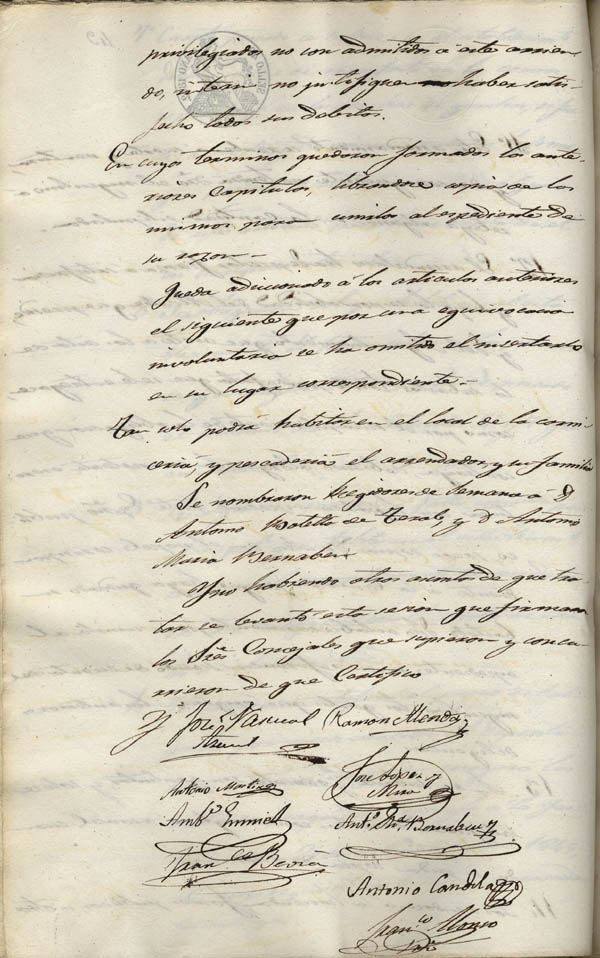 privilegiados no son admitidos á este arrien-
do, interin no justifiquen haber satis-
fecho todos sus debitos.
En cuyos terminos quedaron formados los ante-
riores Capitulos, librandose copia de los
mismos para unirlos al espediente de
su razon.-
Queda adiccionado á los articulos anteriores
el siguiente que por una equivocacion
involuntaria se ha omitido el insertarlo
en su lugar correspondiente.-
Tan solo podrá habitar en el local de la carni-
ceria, y pescaderia el arrendador, y su familia
Se nombraron Regidores de Semana á D
Antonio Botella de Teral, y D Antonio
Maria Bernabeu
Y no habiendo otros asuntos de que tra-
tar se levantó esta sesion que firman
los Sres Concejales que supieron y concu-
rrieron de que Certifico
José Pascual Ramon Alenda
Antonio Martinez José Lopez y
Mira
Ambº Ant.º Mª Bernabeu
Franco Beviá
Antonio Candela
Franco Alonso